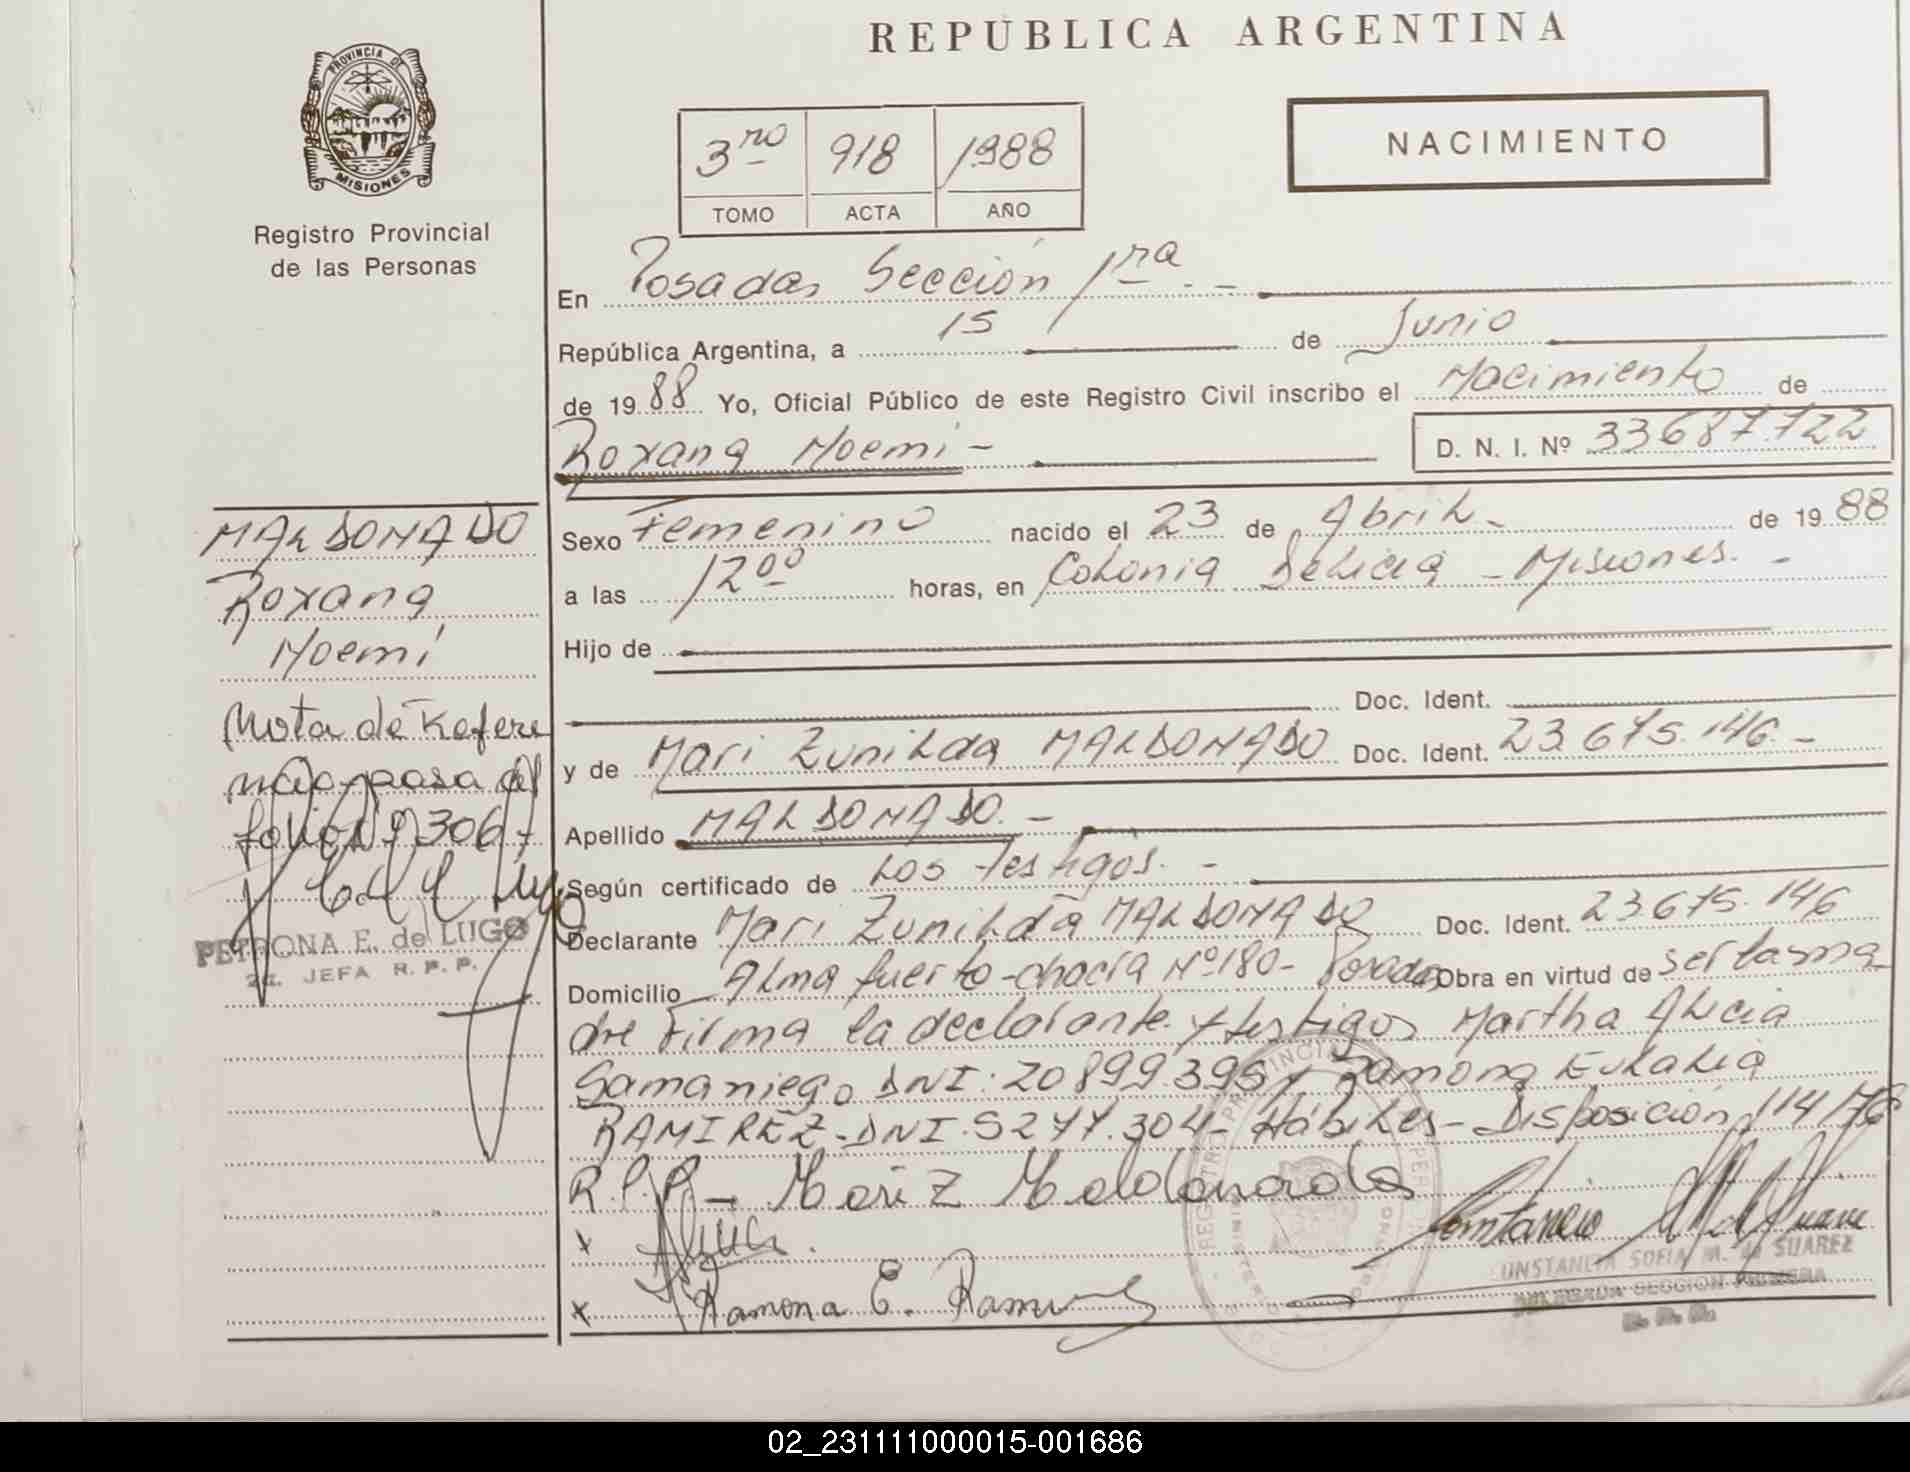 REPUBLICA ARGENTINA
PROVINCIA DE
MISIONES
Registro Provincial
de las Personas
3ro 918 1988
TOMO ACTA AÑO
NACIMIENTO
En Posadas Sección 1ra.-
República Argentina, a 15 de Junio
de 1988 Yo, Oficial Público de este Registro Civil inscribo el Nacimiento de
Roxana Noemi - D. N. I. Nº 33687.722
MALDONADO
Roxana
Noemí
Nota de Refere
ncia pasa al
folio Nº 306
PETRONA E. de LUGO
2da. JEFA R. P. P.
Sexo Femenino nacido el 23 de Abril - de 1988
a las 12ºº horas, en Colonia Delicia - Misiones. -
Hijo de
Doc. Ident.
y de Mari Zunilda MALDONADO Doc. Ident. 23.675.146.-
Apellido MALDONADO. -
Según certificado de Los Testigos. -
Declarante Mari Zunilda MALDONADO Doc. Ident. 23.675.146
Domicilio Alma fuerte-chacra Nº180- Posadas Obra en virtud de ser la ma
dre Firma la declarante y testigos Martha Alicia
Samaniego DNI: 20899395 y Ramona Eulalia
RAMIREZ-DNI.5277.304- Hábiles- Disposición 114/78
R.P.P.- Mariz Maldonado
x
x Ramona E. Ramirez
CONSTANCIA SOFIA M. de SUAREZ
DELEGADA SECCION PRIMERA
R. P. P.
02_231111000015-001686